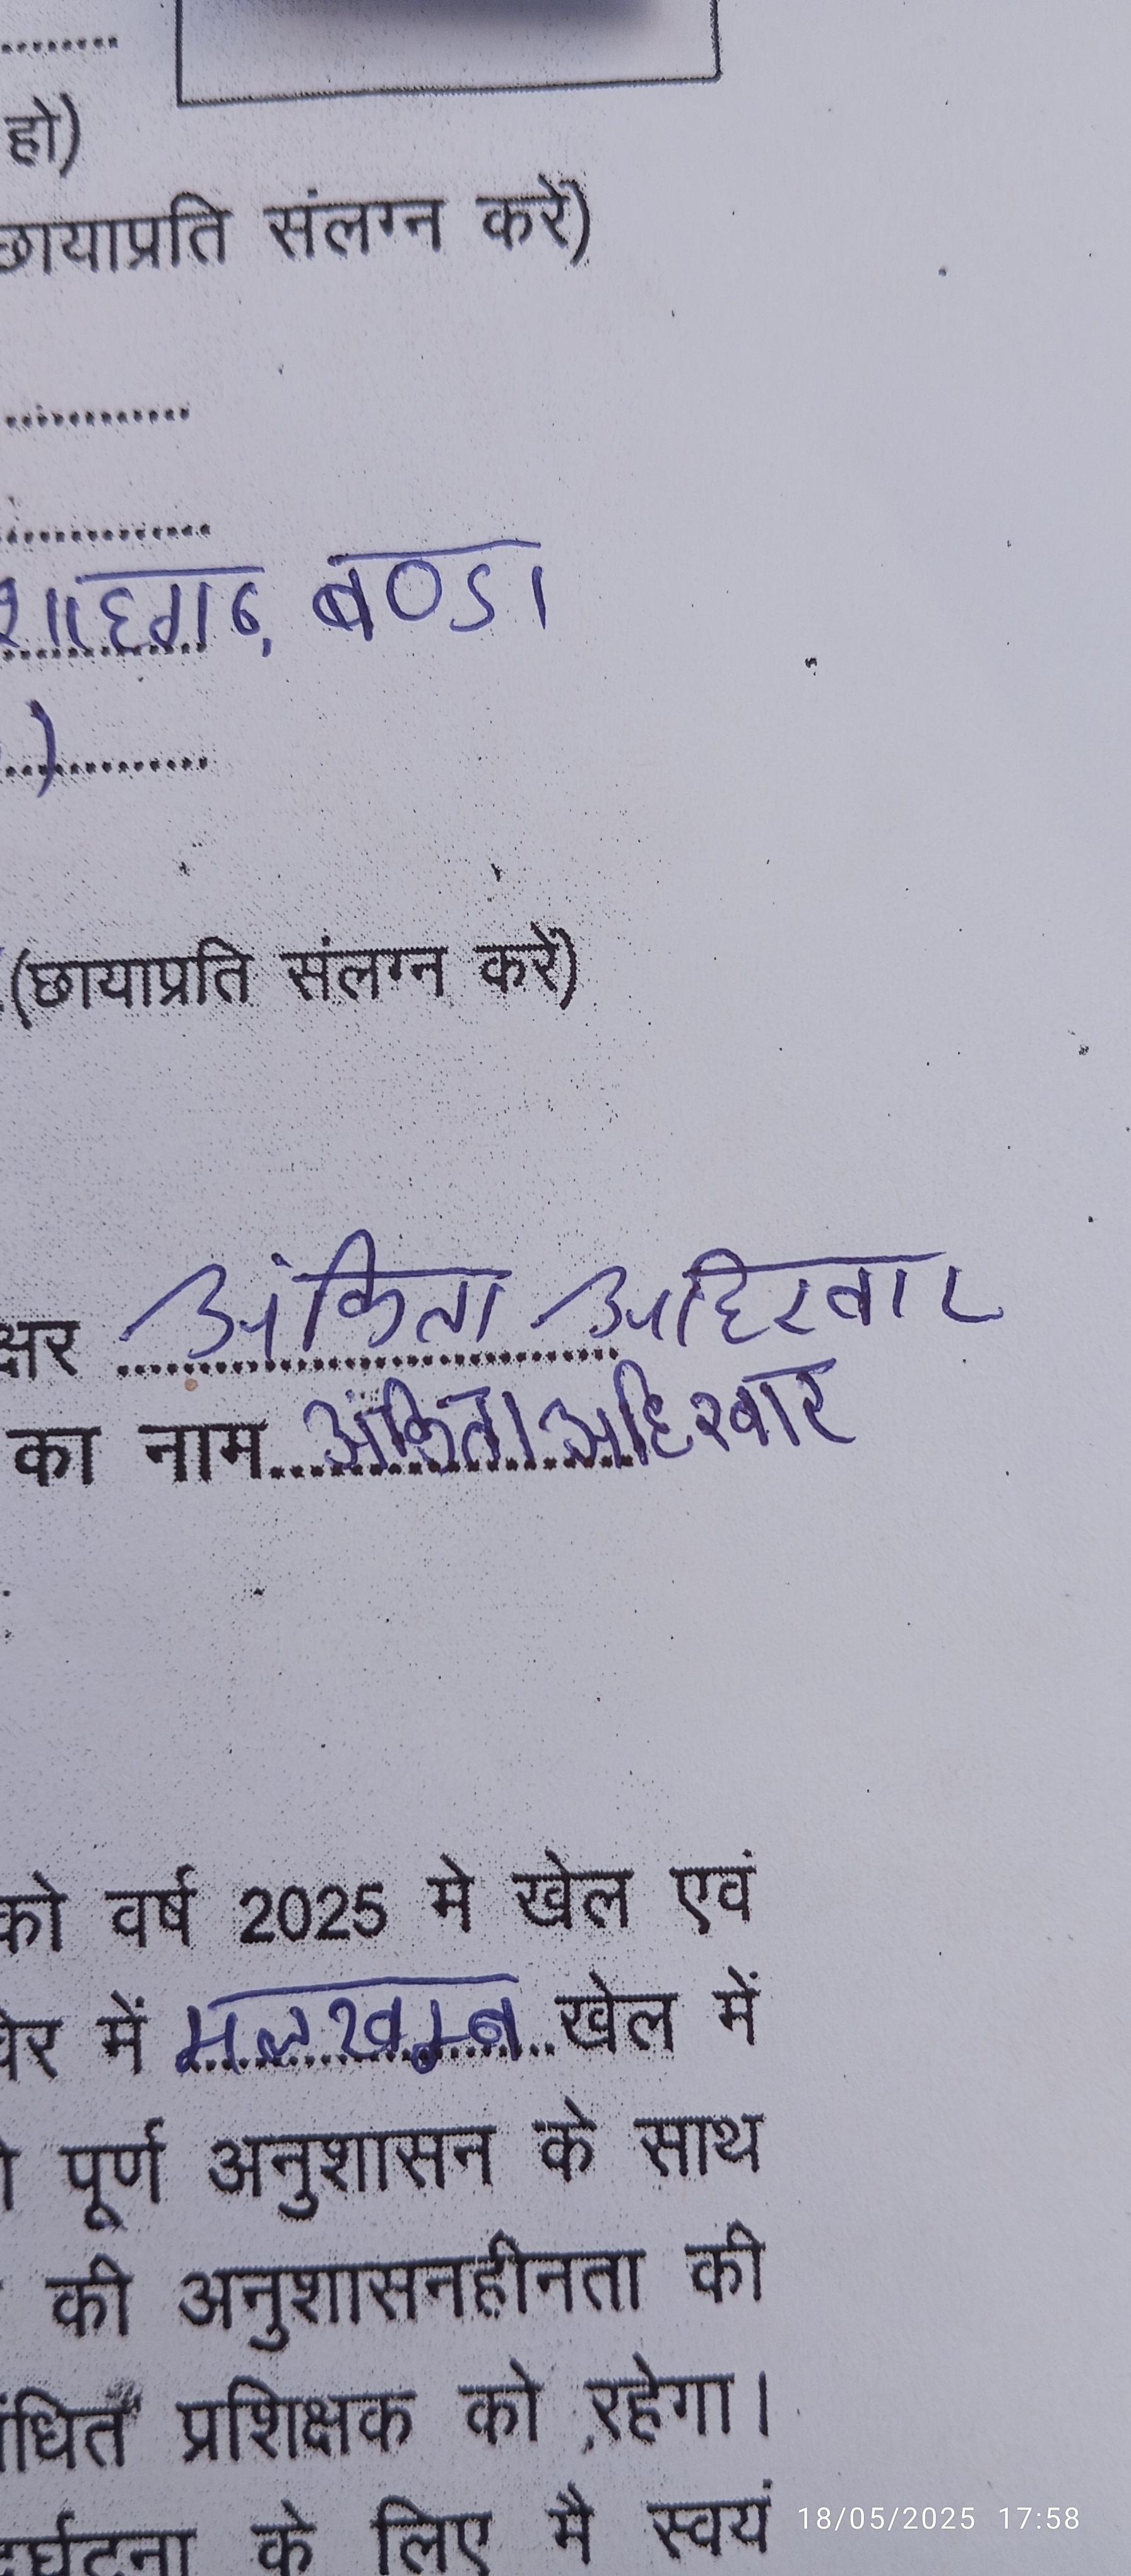 हो)
छायाप्रति संलग्न करें)
शाहगढ़, बण्डा
)
(छायाप्रति संलग्न करें)
क्षर अंकिता अहिरवार
का नाम अंकिता अहिरवार
को वर्ष 2025 मे खेल एवं
में मलखम्ब खेल में
पूर्ण अनुशासन के साथ
की अनुशासनहीनता की
प्रशिक्षक को रहेगा।
के लिए मै स्वयं
18/05/2025 17:58